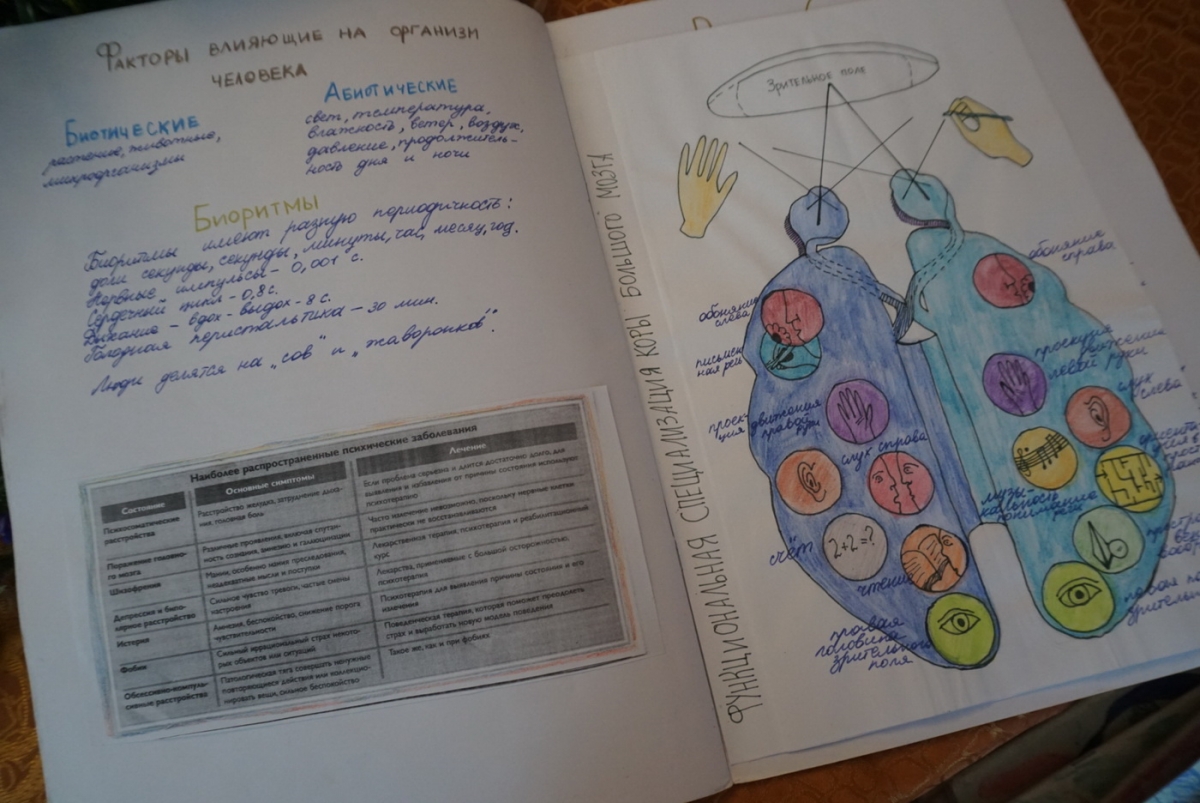 Факторы влияющие на организм
человека
Биотические
растение, животные,
микроорганизмы
Абиотические
свет, температура,
влажность, ветер, воздух,
давление, продолжитель-
ность дня и ночи
Биоритмы
Биоритмы имеют разную периодичность:
доли секунды, секунды, минуты, час, месяц, год.
Нервные импульсы - 0,001 с.
Сердечный цикл - 0,8 с.
Дыхание - вдох - выдох - 8 с.
Голодная перистальтика - 30 мин.
Люди делятся на „сов" и „жаворонков".
Наиболее распространенные психические заболевания
Состояние
Основные симптомы
Лечение
Психосоматические
расстройства
Расстройство желудка, затруднение дыха-
ния, головная боль
Если проблема серьезна и длится достаточно долго, для
выявления и избавления от причины состояния используют
психотерапию
Поражение головно-
го мозга
Различные проявления, включая спутан-
ность сознания, амнезию и галлюцинации
Часто излечение невозможно, поскольку нервные клетки
практически не восстанавливаются
Шизофрения
Мании, особенно мания преследования,
неадекватные мысли и поступки
Лекарственная терапия, психотерапия и реабилитационный
курс
Депрессия и бипо-
лярное расстройство
Сильное чувство тревоги, частые смены
настроения
Лекарства, применяемые с большой осторожностью,
психотерапия
Истерия
Амнезия, беспокойство, снижение порога
чувствительности
Психотерапия для выявления причины состояния и его
излечения
Фобии
Сильный иррациональный страх некото-
рых объектов или ситуаций
Поведенческая терапия, которая поможет преодолеть
страх и выработать новую модель поведения
Обсессивно-компуль-
сивные расстройства
Патологическая тяга совершать ненужные
повторяющиеся действия или коллекцио-
нировать вещи, сильное беспокойство
Такое же, как и при фобиях
Функциональная специализация коры большого мозга
Зрительное поле
обоняние
слева
письмен-
ная речь
проек-
ция движения
правой
руки
слух справа
счёт
2+2=?
чтение
правая
половина
зрительного
поля
обоняние
справа
проекция
движения
левой руки
слух
слева
музы-
кальность
понимание
речи
левая
зритель